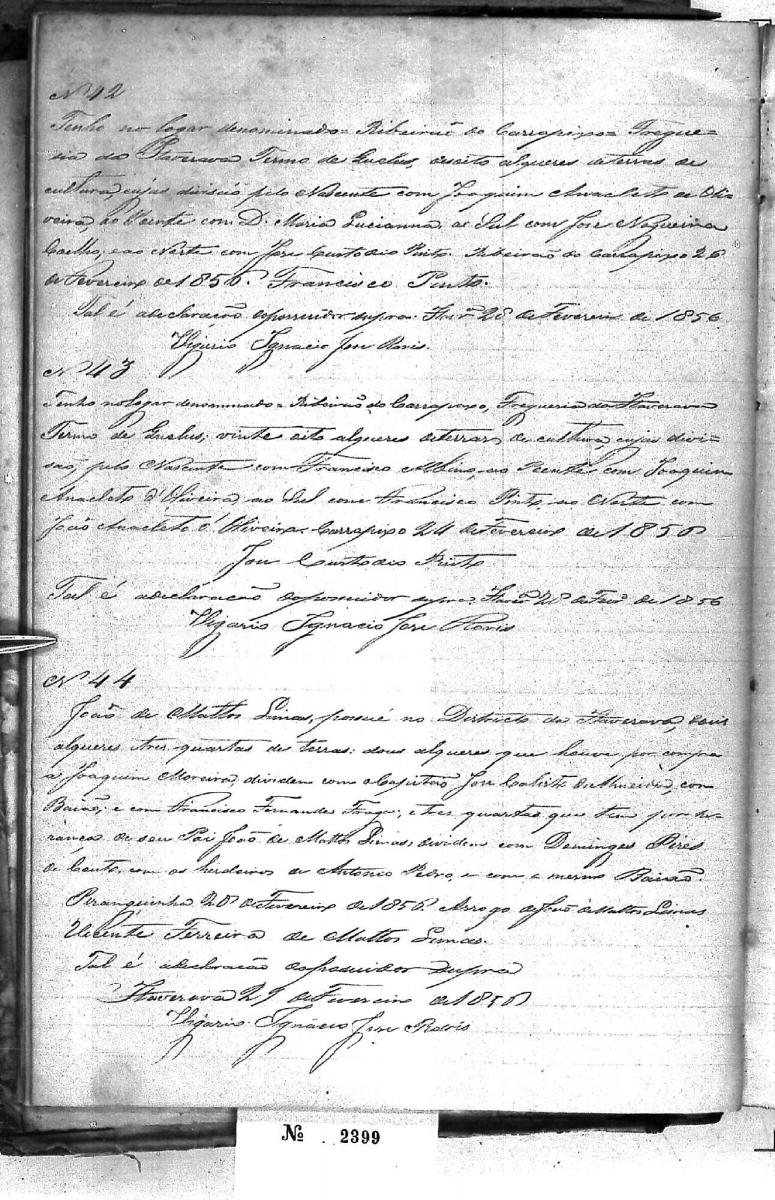 Nº 42
Tenho no logar denominado = Ribeirão do Carrapixo = Fregue-
sia da Itaverava Termo de Quelus, desoito alqueres de terras de
cultura, cujas divisois pelo Nascente com Joaquim Anacleto de Oli-
veira, ao Poente com D. Maria Lucianna, ao Sul com Jose Nogueira
Coelho, e ao Norte com Jose Custodio Pinto. Ribeirão do Carrapixo 26
de Fevereiro de 1856. Francisco Pinto.
Tal é a declaração do possuidor supra. 28 de Fevereiro de 1856
Vigario Ignacio Jose
Nº 43
Tenho no logar denominado = Ribeirão do Carrapixo, Freguesia da Itaverava
Termo de Quelus; vinte oito alqueres de terras de cultura, cujas divi-
são, pelo Nascente com Francisco ao Poente com Joaquim
Anacleto d'Oliveira, ao Sul com Francisco Pinto, ao Norte com
João Anacleto d'Oliveira. Carrapixo 24 de Fevereiro de 1856
Jose Custodio Pinto
Tal é a declaração do possuidor supra. 28 de Fevrº de 1856
Vigario Ignacio Jose
Nº 44
João de Mattos Limas, possué no Districto da Itaverava, dous
alqueres e tres quartas de terras: dous alqueres que houve por compra
a Joaquim Moreira, dividem com o Capitão Jose Calisto de Almeida, com
Baião; e com Francisco Fernandes Fraga; e tres quartas que tem por he-
rança de seu Pai João de Mattos Limas, dividem com Domingos Pires
do Couto, com os herdeiros de Antonio Pedro, e com o mesmo Baião.
Piranguinha 28 de Fevereiro de 1856. Arrogo de João de Mattos Limas
Vicente Ferreira de Mattos Limas.
Tal é a declaração do possuidor supra
Itaverava 29 de Fevereiro de 1856
Vigario Ignacio Jose
Nº 2399